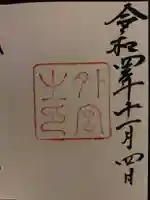 令和四年十一月四日
外宮
之印